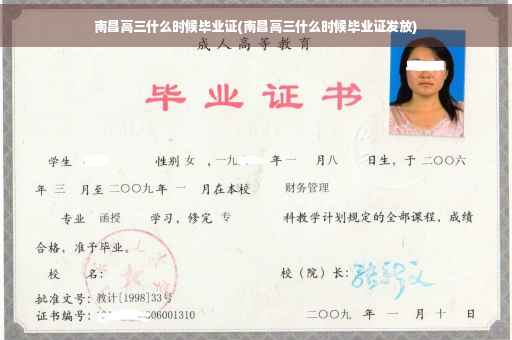 南昌高三什么时候毕业证(南昌高三什么时候毕业证发放)
成人高等教育
毕业证书
学生 性别 女 ，一九 年 一 月八 日生，于 二〇〇六
年 三 月至 二〇〇九年 一 月在本校 财务管理
专业 函授 学习，修完 专 科教学计划规定的全部课程，成绩
合格，准予毕业。
校 名： 校（院）长：
批准文号：教计[1998]33号
证书编号： 06001310 二〇〇九 年 一 月 十 日